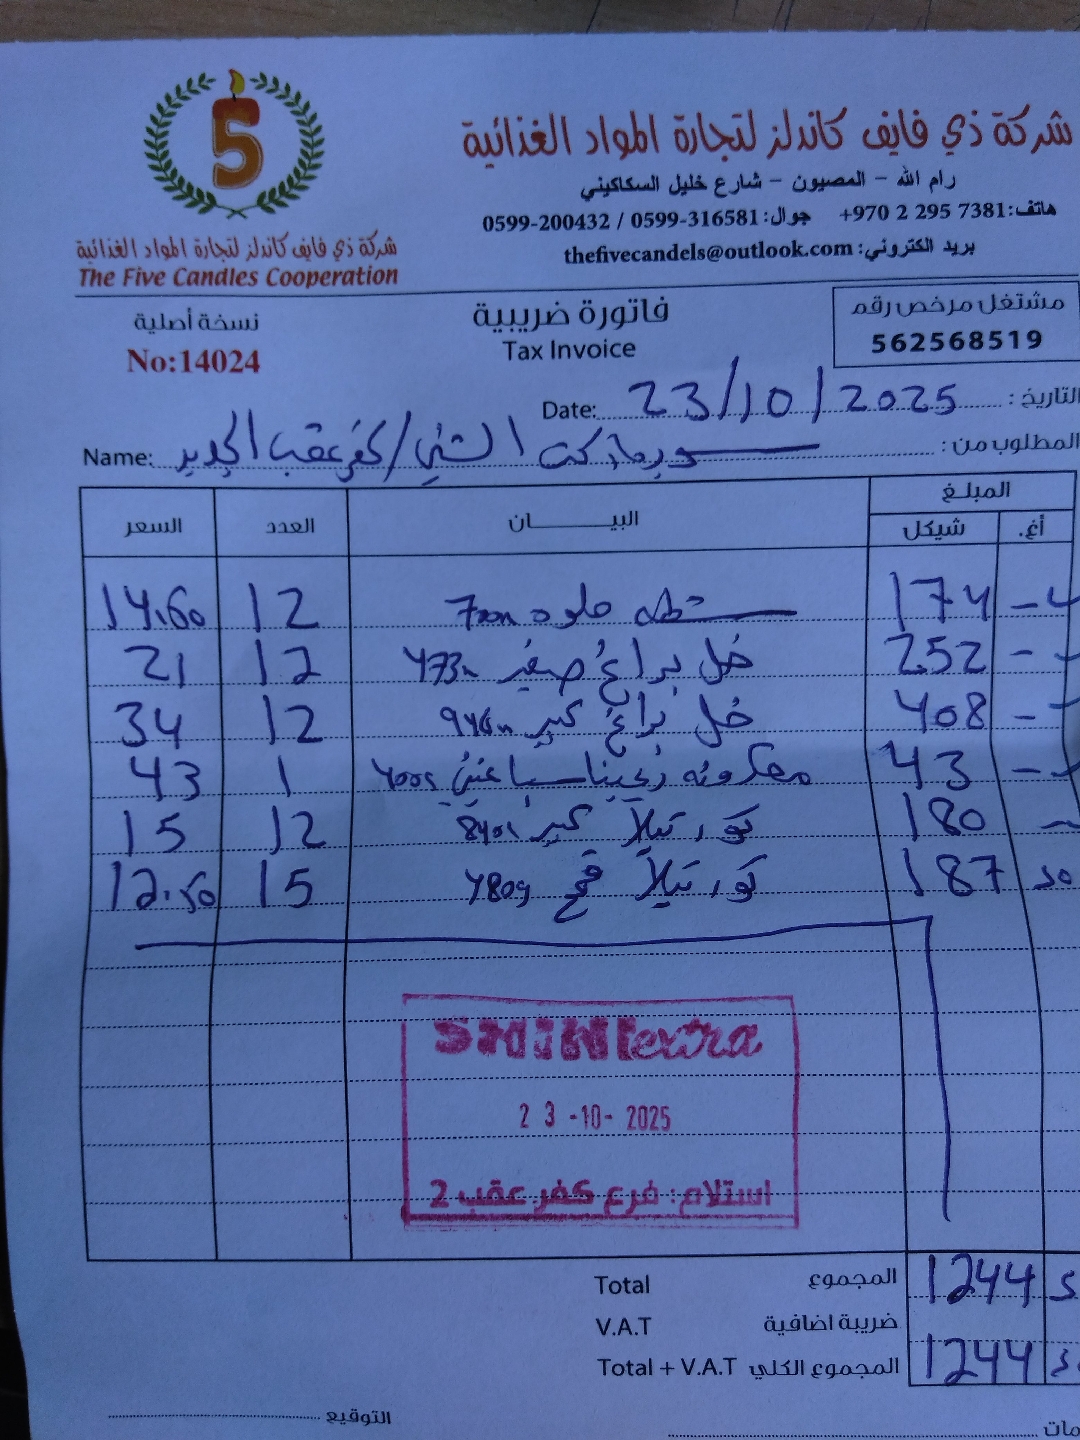 5
شركة ذي فايف كاندلز لتجارة المواد الغذائية
The Five Candles Cooperation
شركة ذي فايف كاندلز لتجارة المواد الغذائية
رام الله - المصيون - شارع خليل السكاكيني
هاتف: +970 2 295 7381 جوال: 0599-316581 / 0599-200432
بريد الكتروني: thefivecandels@outlook.com
مشتغل مرخص رقم
562568519
فاتورة ضريبية
Tax Invoice
نسخة أصلية
No:14024
التاريخ: 23/10/2025 Date:
المطلوب من: سوبرماركت الشني/كفر عقب الجديد Name:
المبلغ
أغ. شيكل البيــــــان العدد السعر
174 12 14.60
252 خل براغ صغير 473 12 21
408 خل براغ كبير 946 12 34
43 معكرونه 400g 1 43
180 تورتيلا كبير 12 15
50 187 تورتيلا قمح 480g 15 12.50
SHINI extra
23-10-2025
استلام: فرع كفر عقب 2
المجموع Total 1244
ضريبة اضافية V.A.T
المجموع الكلي Total + V.A.T 1244
التوقيع